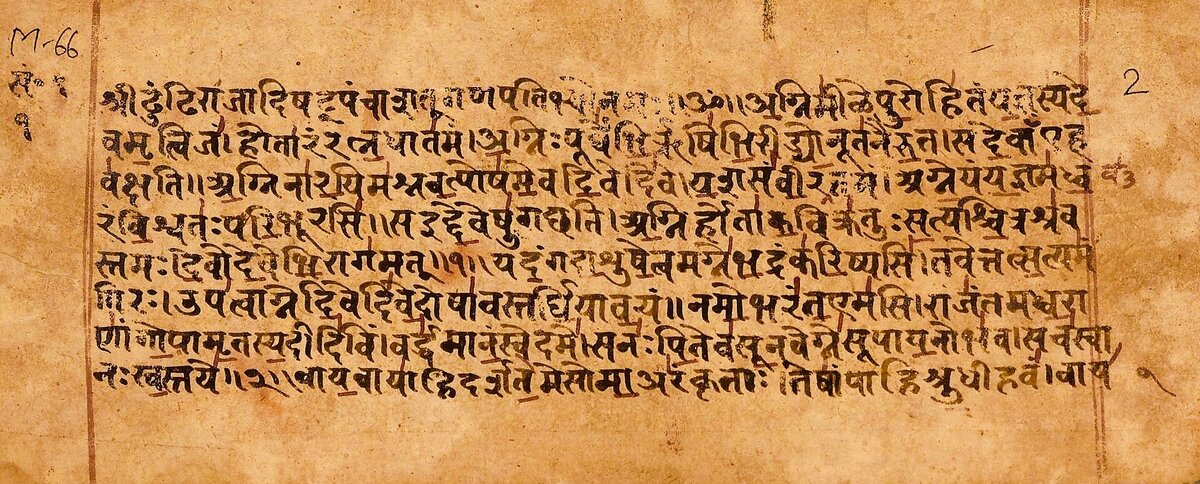 M-66
सं॰ १
१
2
श्रीढुंढिराजादिषट्पंचाशत् गणपतिभ्यो नमः॥ॐ॥अ॒ग्निमी॑ळेपु॒रोहि॑तंय॒ज्ञस्य॑दे॒
व॒मृ॒त्विज॑। होता॑रंरत्न॒धात॑म। अ॒ग्निःपूर्वे॑भि॒र्ऋषि॑भि॒रीड्यो॒नूत॑नैरु॒त। सदे॒वाँएह
व॑क्षति॥ अ॒ग्निना॑र॒यिम॑श्नव॒त्पोष॑मे॒वदि॒वेदि॑वे। य॒शसं॑वी॒रव॑त्तमं। अग्ने॒यंय॒ज्ञम॑ध्व॒
रंवि॒श्वतः॑परि॒भूरसि॑॥ सइद्दे॒वेषु॑गछति। अ॒ग्निर्होता॑क॒विक्र॑तुः स॒त्यश्चि॒त्रश्र॑व
स्तमः। दे॒वोदे॒वेभि॒राग॑मत्॥१॥ यद॒ंगदा॒शुषे॒त्वमग्ने॑भ॒द्रंक॑रि॒ष्यसि॑। तवेत्तत्स॒त्यमं॑
गिरः। उप॑त्वाग्नेदि॒वेदि॑वे॒दोषा॑वस्तर्धि॒याव॒यं॥ नमो॒भरं॑त॒एम॑सि। राजं॑तमध्व॒रा
णां॑गो॒पामृ॒तस्य॒दीदि॑विं। वर्द्ध॑मानं॒स्वेदमे॑। सनः॑पि॒तेव॑सू॒नवेग्ने॑सूपाय॒नोभ॑व। सच॑स्वा
नःस्व॒स्तये॑॥२॥ वाय॒वाया॑हिदर्शते॒मेसोमा॒अरं॑कृताः। तेषां॑पाहिश्रु॒धीहवं॑। वाय॑